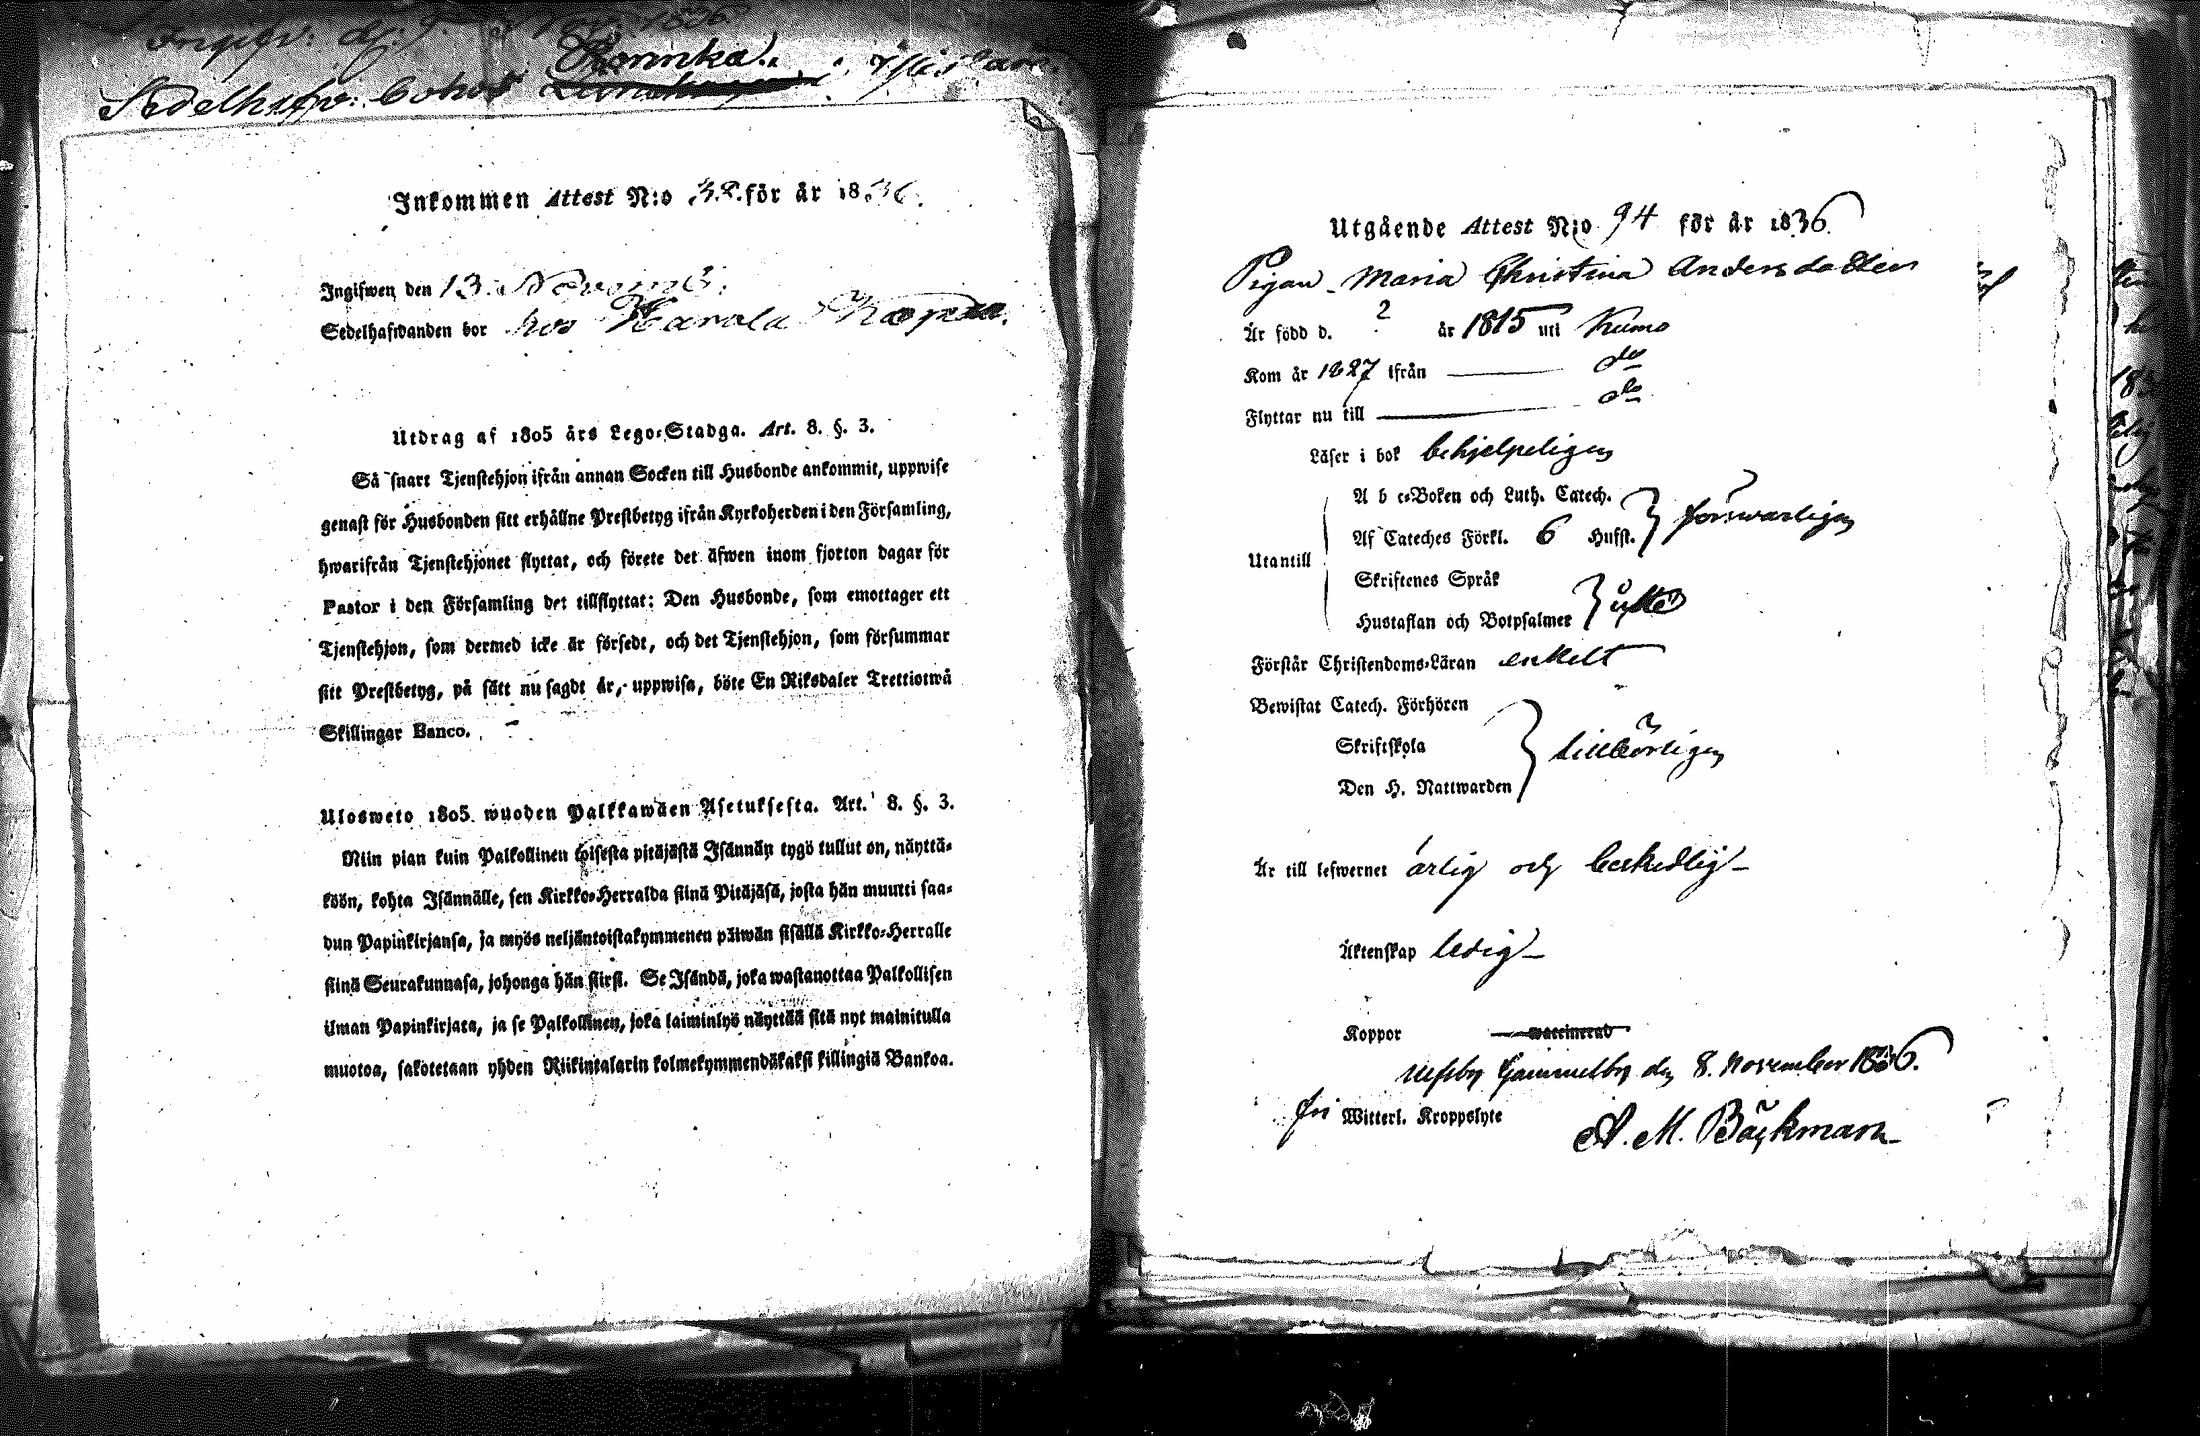 Sedelhafv: bohos
Inkommen Attest N:o 32. för år 1836.
Ingifwen den 13. Novemb:
Sedelhafwanden bor hos Harola
Utdrag af 1805 års Lego-Stadga. Art. 8. §. 3.
Så snart Tjenstehjon ifrån annan Socken till Husbonde ankommit, uppwise
genast för Husbonden sitt erhållne Prestbetyg ifrån Kyrkoherden i den Församling,
hwarifrån Tjenstehjonet flyttat, och förete det äfwen inom fjorton dagar för
Pastor i den Församling det tillflyttat: Den Husbonde, som emottager ett
Tjenstehjon, som dermed icke är försedt, och det Tjenstehjon, som försummar
sitt Prestbetyg, på sätt nu sagdt är, uppwisa, böte En Riksdaler Trettiotwå
Skillingar Banco.
Uloswеto 1805 wuoden Palkkawäen Asetuksesta. Art. 8. §. 3.
Niin pian kuin Palkollinen toisesta pitäjästä Isännän tygö tullut on, näyttä-
köön, kohta Isännälle, sen Kirkko-Herralda siinä Pitäjäsä, josta hän muutti saa-
dun Papinkirjansa, ja myös neljäntoistakymmenen päiwän sisällä Kirkko-Herralle
siinä Seurakunnasa, johonga hän siirsi. Se Isändä, joka wastanottaa Palkollisen
ilman Papinkirjata, ja se Palkollinen, joka laiminlyö näyttää sitä nyt mainitulla
muotoa, sakotetaan yhden Riikintalarin kolmekymmendäkaksi killingiä Bankoa.
Utgående Attest N:o 94 för år 1836.
Pigan Maria Christina Andersdotter
Är född d. ? år 1815 uti Kumo
Kom år 1827 ifrån do
Flyttar nu till do
Läser i bok behjelpeligen
A b c-Boken och Luth. Catech.
Af Cateches Förkl. 6 Hufst. } förswarligen
Utantill
Skriftenes Språk
Hustaflan och Botpsalmer
Förstår Christendoms-Läran enkelt
Bewistat Catech. Förhören
Skriftskola } tillbörligen
Den H. Nattwarden
Är till lefwernet ärlig och beskedlig
Äktenskap ledig
Koppor waccinerad
Ulfsby Gammelby den 8. November 1836.
fri Witterl. Kroppslyte
A. M. Bäckman